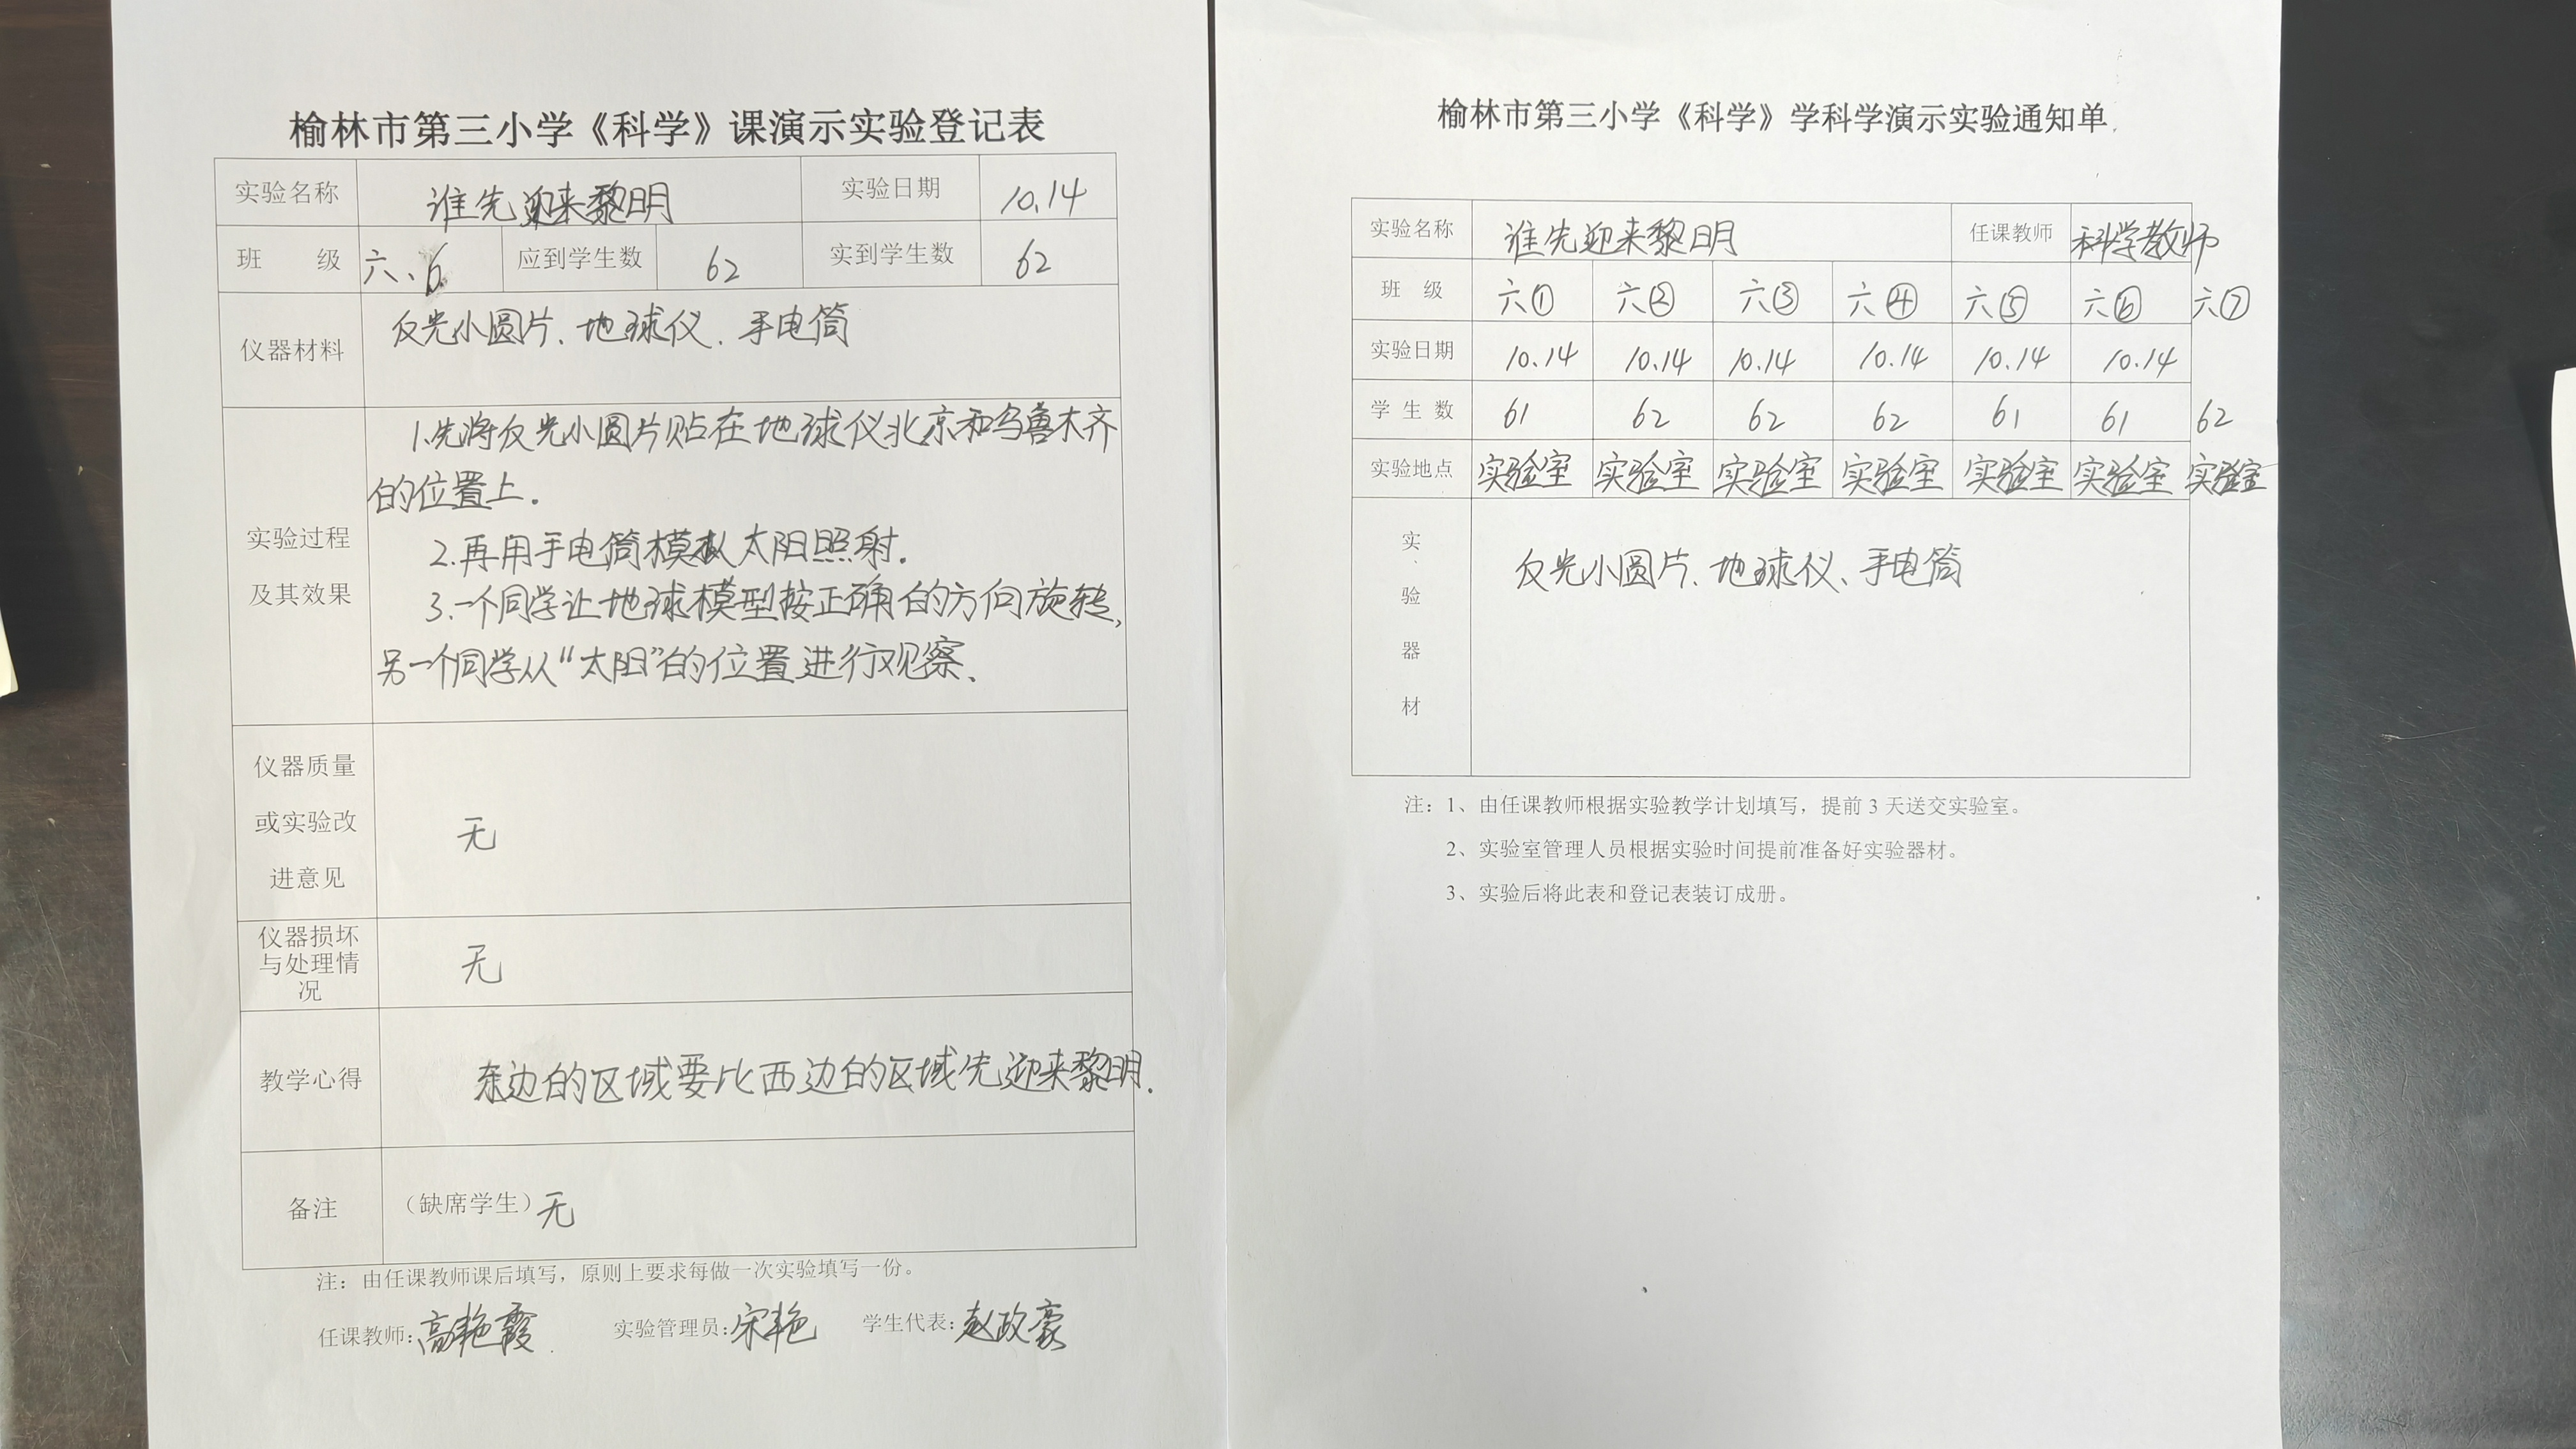 榆林市第三小学《科学》课演示实验登记表
实验名称 谁先迎来黎明 实验日期 10.14
班 级 六、6 应到学生数 62 实到学生数 62
仪器材料 反光小圆片、地球仪、手电筒
实验过程
及其效果
1.先将反光小圆片贴在地球仪北京和乌鲁木齐
的位置上.
2.再用手电筒模拟太阳照射.
3.一个同学让地球模型按正确的方向旋转,
另一个同学从“太阳”的位置进行观察、
仪器质量
或实验改
进意见
无
仪器损坏
与处理情
况
无
教学心得 东边的区域要比西边的区域先迎来黎明.
备注 （缺席学生）无
注：由任课教师课后填写，原则上要求每做一次实验填写一份。
任课教师:高艳霞 实验管理员:宋艳 学生代表:赵政豪
榆林市第三小学《科学》学科学演示实验通知单
实验名称 谁先迎来黎明 任课教师 科学教师
班 级 六① 六② 六③ 六④ 六⑤ 六⑥ 六⑦
实验日期 10.14 10.14 10.14 10.14 10.14 10.14
学 生 数 61 62 62 62 61 61 62
实验地点 实验室 实验室 实验室 实验室 实验室 实验室 实验室
实
验
器
材
反光小圆片、地球仪、手电筒
注：1、由任课教师根据实验教学计划填写，提前 3 天送交实验室。
2、实验室管理人员根据实验时间提前准备好实验器材。
3、实验后将此表和登记表装订成册。